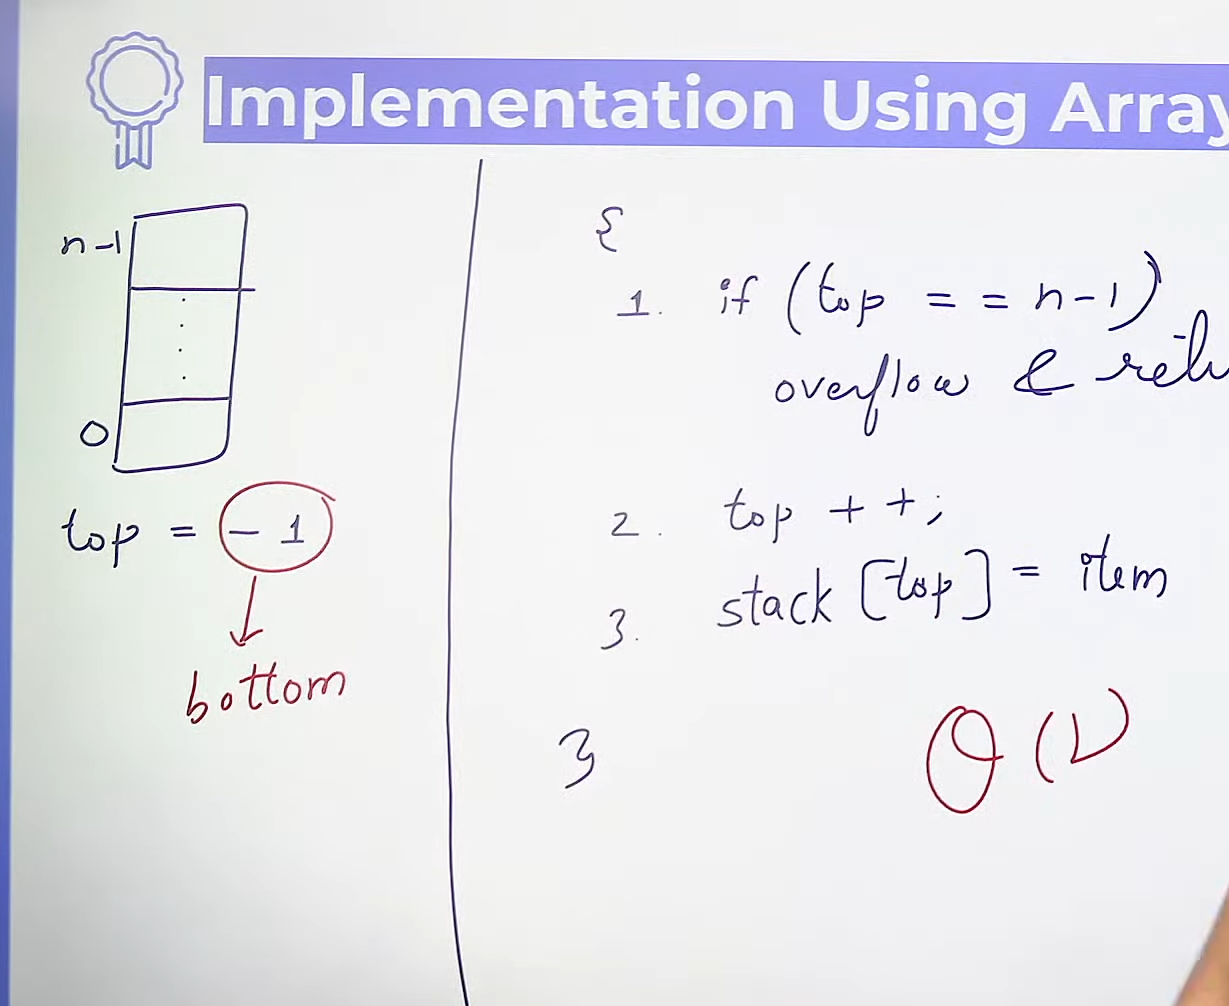 Implementation Using Array
n-1
0
top = -1
bottom
{
1. if (top == n-1)
overflow &
2. top ++;
3. stack [top] = item
}
θ(1)